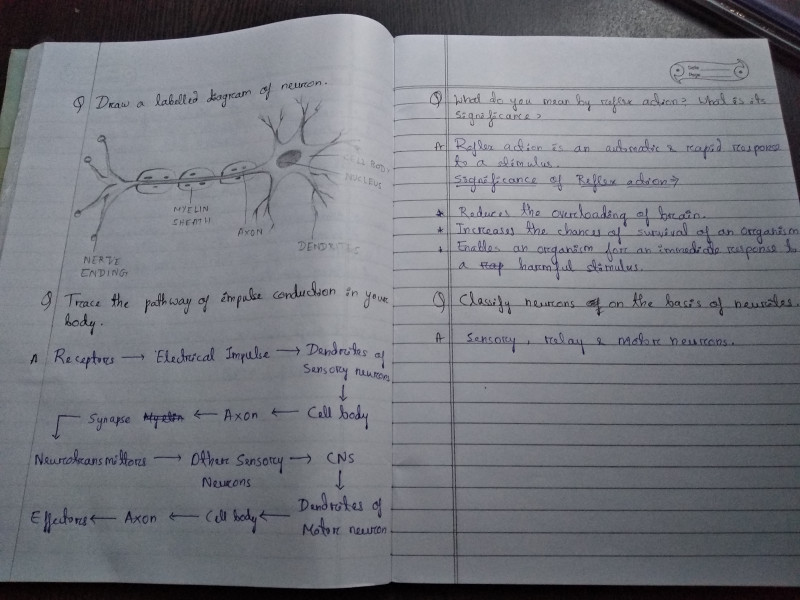 Q Draw a labelled diagram of neuron.
CELL BODY
NUCLEUS
MYELIN
SHEATH
AXON
DENDRITES
NERVE
ENDING
Q Trace the pathway of impulse conduction in your
body.
A Receptors → Electrical Impulse → Dendrites of
Sensory neuron
↓
Synapse Myelin ← Axon ← Cell body
Neurotransmittors → Other Sensory → CNS
Neurons
↓
Effectors ← Axon ← Cell body ← Dendrites of
Motor neuron
Date
Page
Q What do you mean by reflex action? What is its
significance?
A Reflex action is an automatic & rapid response
to a stimulus.
Significance of Reflex action ⇒
* Reduces the overloading of brain.
* Increases the chances of survival of an organism
* Enables an organism for an immediate response to
a rap harmful stimulus.
Q Classify neurons of on the basis of neurites.
A Sensory, relay & Motor neurons.